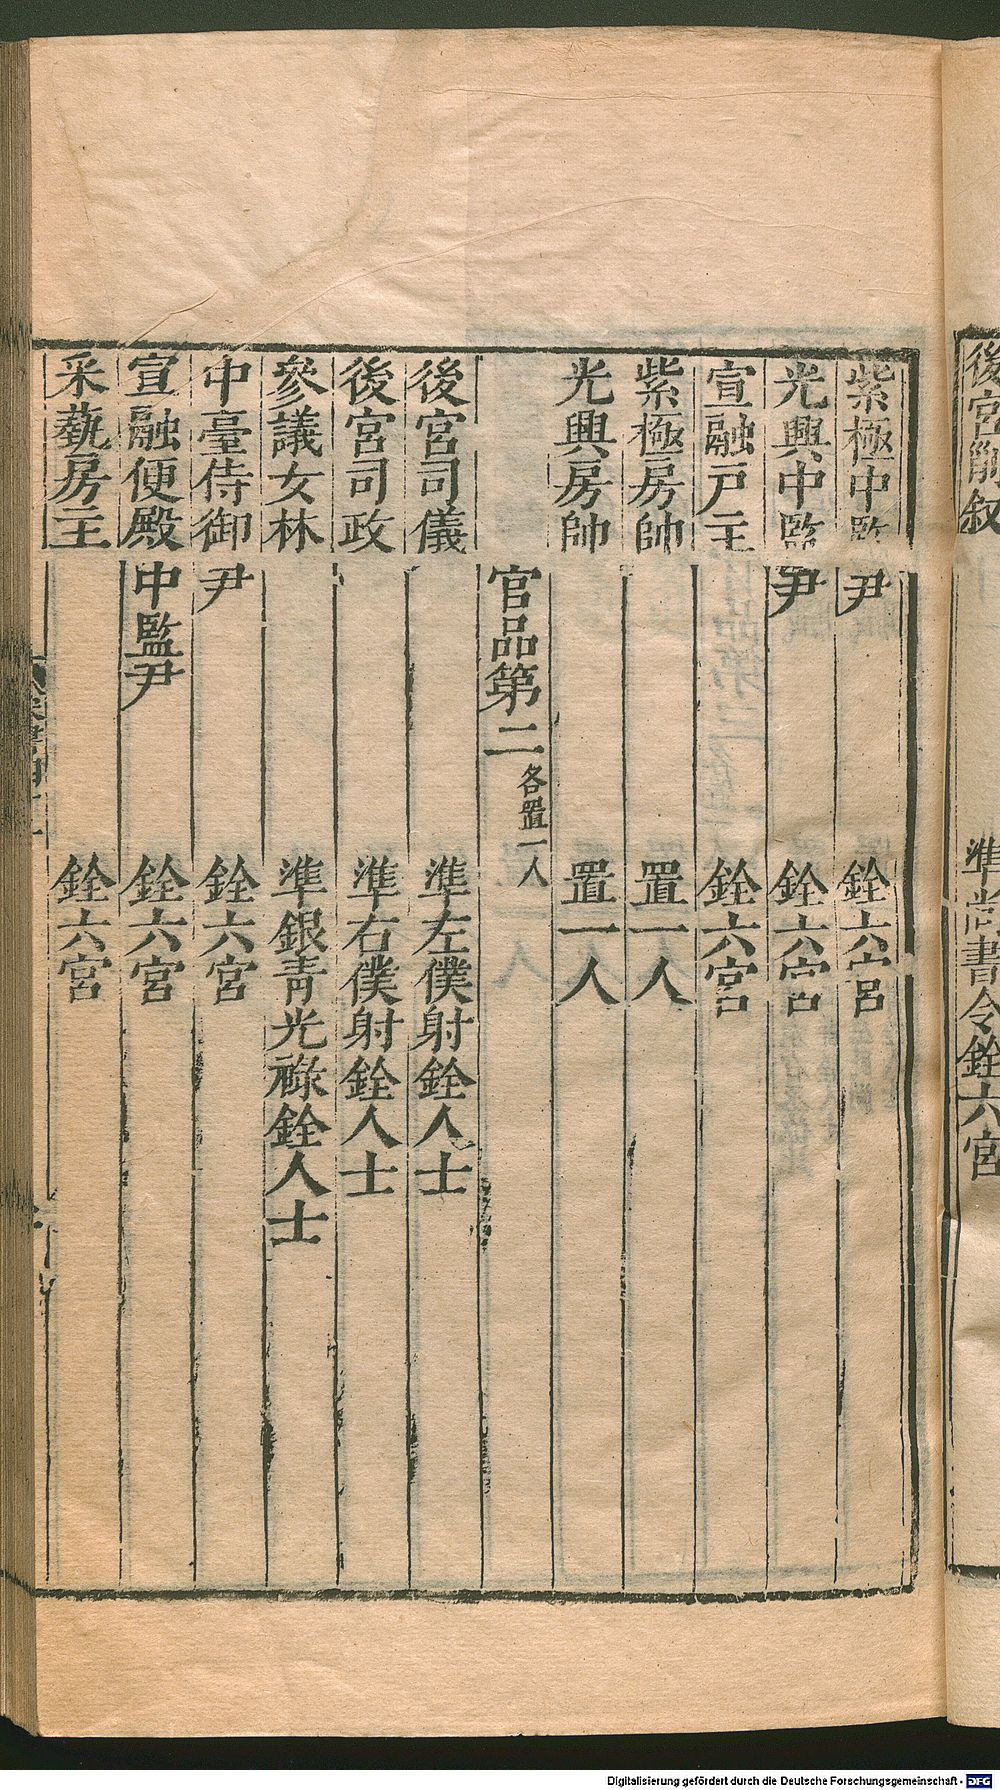 後宮削叙 準尚書令銓六宮
紫極中監尹 銓六宮
光興中監尹 銓六宮
宣融戸主 銓六宮
紫極房帥 置一人
光興房帥 置一人
官品第二各置一人
後宮司儀 準左僕射銓人士
後宮司政 準右僕射銓人士
參議女林 準銀青光祿銓人士
中臺侍御尹 銓六宮
宣融便殿中監尹 銓六宮
采蓺房主 銓六宮
Digitalisierung gefördert durch die Deutsche Forschungsgemeinschaft - DFG